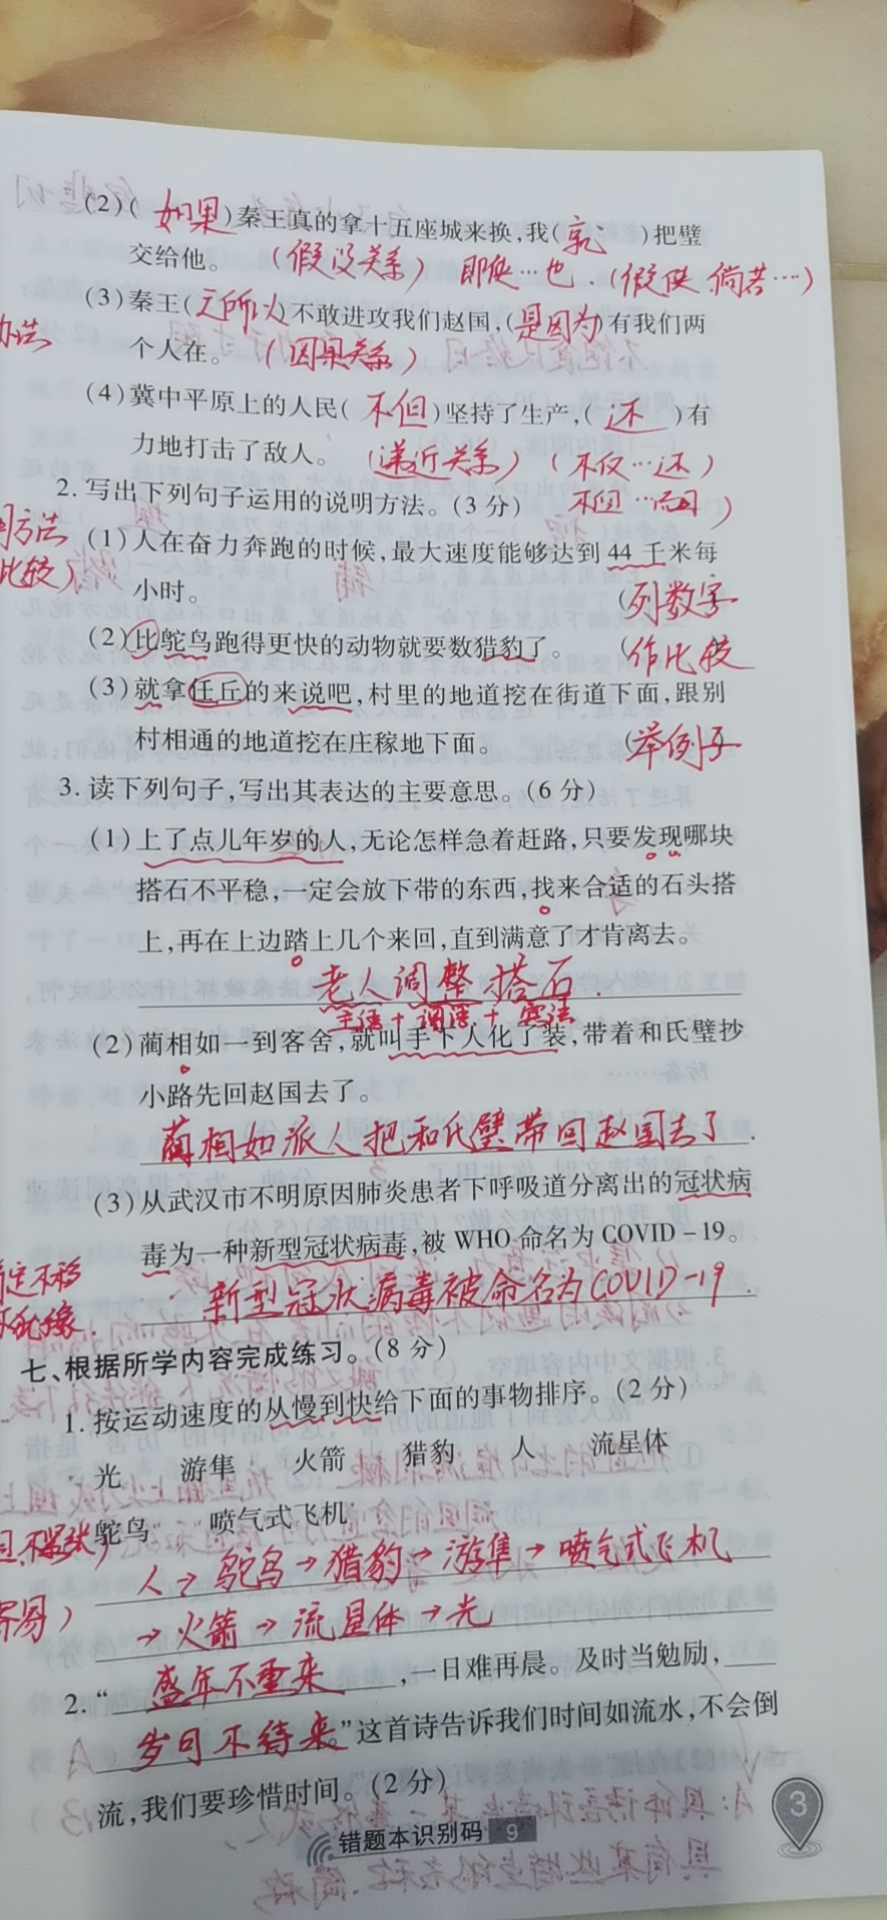 (2)( 如果 )秦王真的拿十五座城来换,我( 就 )把璧
交给他。 (假设关系) 即使…也.(假使 倘若…)
(3)秦王( 之所以 )不敢进攻我们赵国,(是因为)有我们两
个人在。 (因果关系)
(4)冀中平原上的人民( 不但 )坚持了生产,( 还 )有
力地打击了敌人。 (递近关系) (不仅…还)
2.写出下列句子运用的说明方法。(3分) 不但…而且)
方法
(1)人在奋力奔跑的时候,最大速度能够达到44千米每
比较)
小时。 (列数字
(2)比鸵鸟跑得更快的动物就要数猎豹了。 (作比较
(3)就拿任丘的来说吧,村里的地道挖在街道下面,跟别
村相通的地道挖在庄稼地下面。 (举例子
3.读下列句子,写出其表达的主要意思。(6分)
(1)上了点儿年岁的人,无论怎样急着赶路,只要发现哪块
搭石不平稳,一定会放下带的东西,找来合适的石头搭
上,再在上边踏上几个来回,直到满意了才肯离去。
老人调整搭石.
主语+谓语+宾语
(2)蔺相如一到客舍,就叫手下人化了装,带着和氏璧抄
小路先回赵国去了。
蔺相如派人把和氏璧带回赵国去了.
(3)从武汉市不明原因肺炎患者下呼吸道分离出的冠状病
毒为一种新型冠状病毒,被WHO命名为COVID-19。
新型冠状病毒被命名为COVID-19.
七、根据所学内容完成练习。(8分)
1.按运动速度的从慢到快给下面的事物排序。(2分)
光 游隼 火箭 猎豹 人 流星体
鸵鸟 喷气式飞机
人→鸵鸟→猎豹→游隼→喷气式飞机
→火箭→流星体→光
2.“ 盛年不重来 ,一日难再晨。及时当勉励,
岁月不待来。”这首诗告诉我们时间如流水,不会倒
流,我们要珍惜时间。(2分)
3
错题本识别码 9